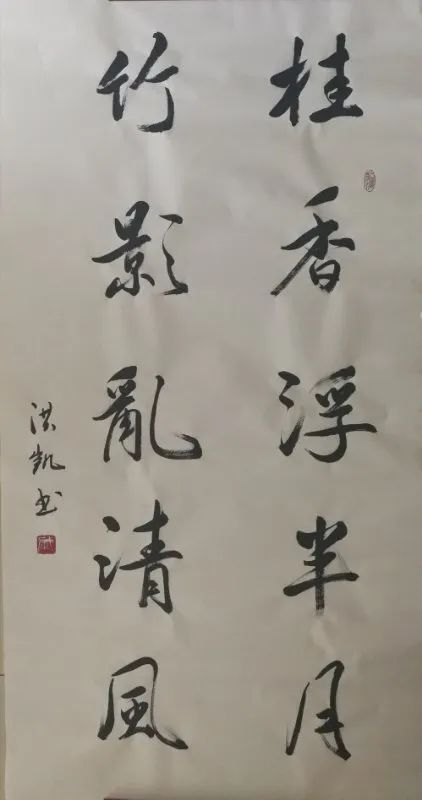 桂香浮半月
竹影亂清風
洪凱书